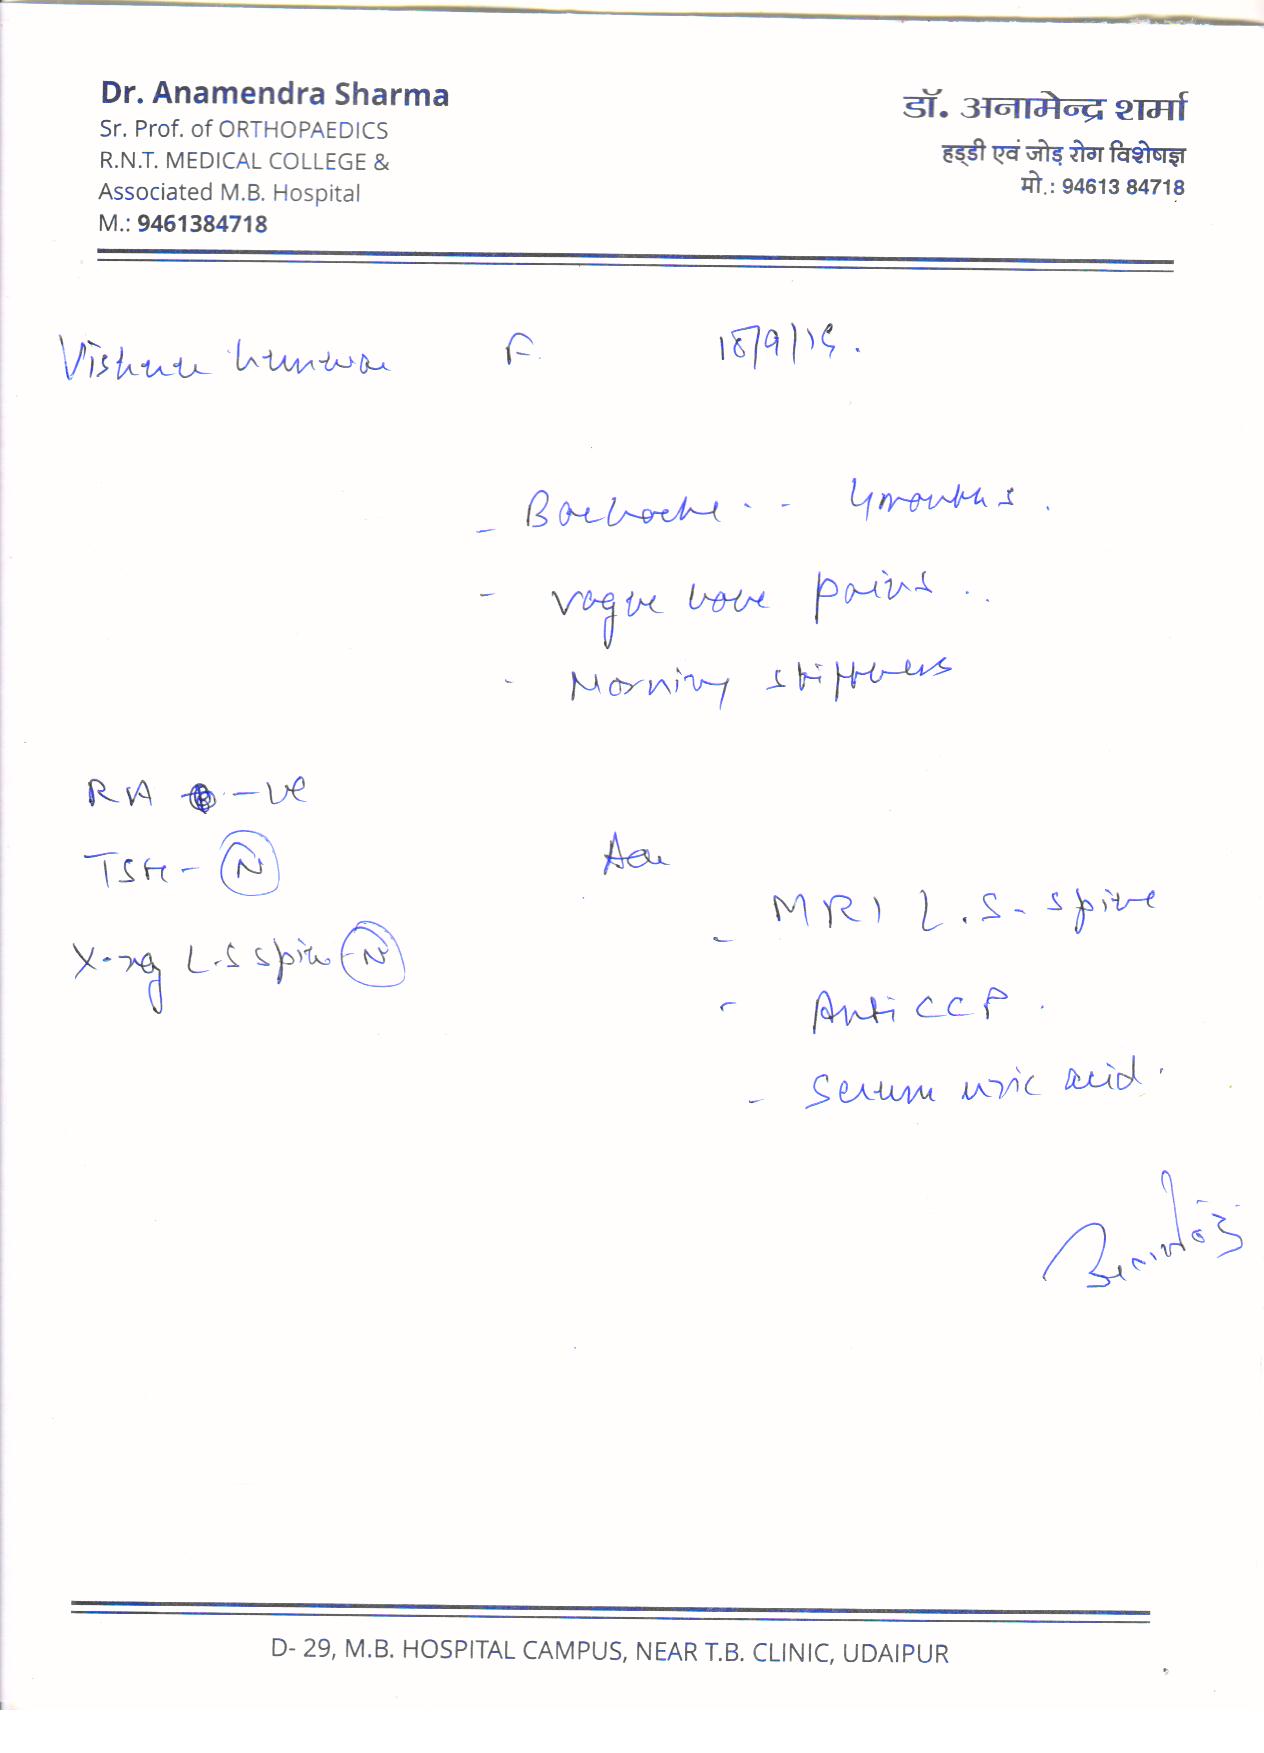 Dr. Anamendra Sharma
Sr. Prof. of ORTHOPAEDICS
R.N.T. MEDICAL COLLEGE &
Associated M.B. Hospital
M.: 9461384718
डॉ. अनामेन्द्र शर्मा
हड्डी एवं जोड़ रोग विशेषज्ञ
मो.: 94613 84718
F. 18/9/19.
- Backache - - 4 months.
- Vague bone pains..
- Morning stiffness
RA -ve
TSH - N
X-ray L.S spine N
Adv
- MRI L.S. spine
- Anti CCP.
- Serum uric acid.
D- 29, M.B. HOSPITAL CAMPUS, NEAR T.B. CLINIC, UDAIPUR